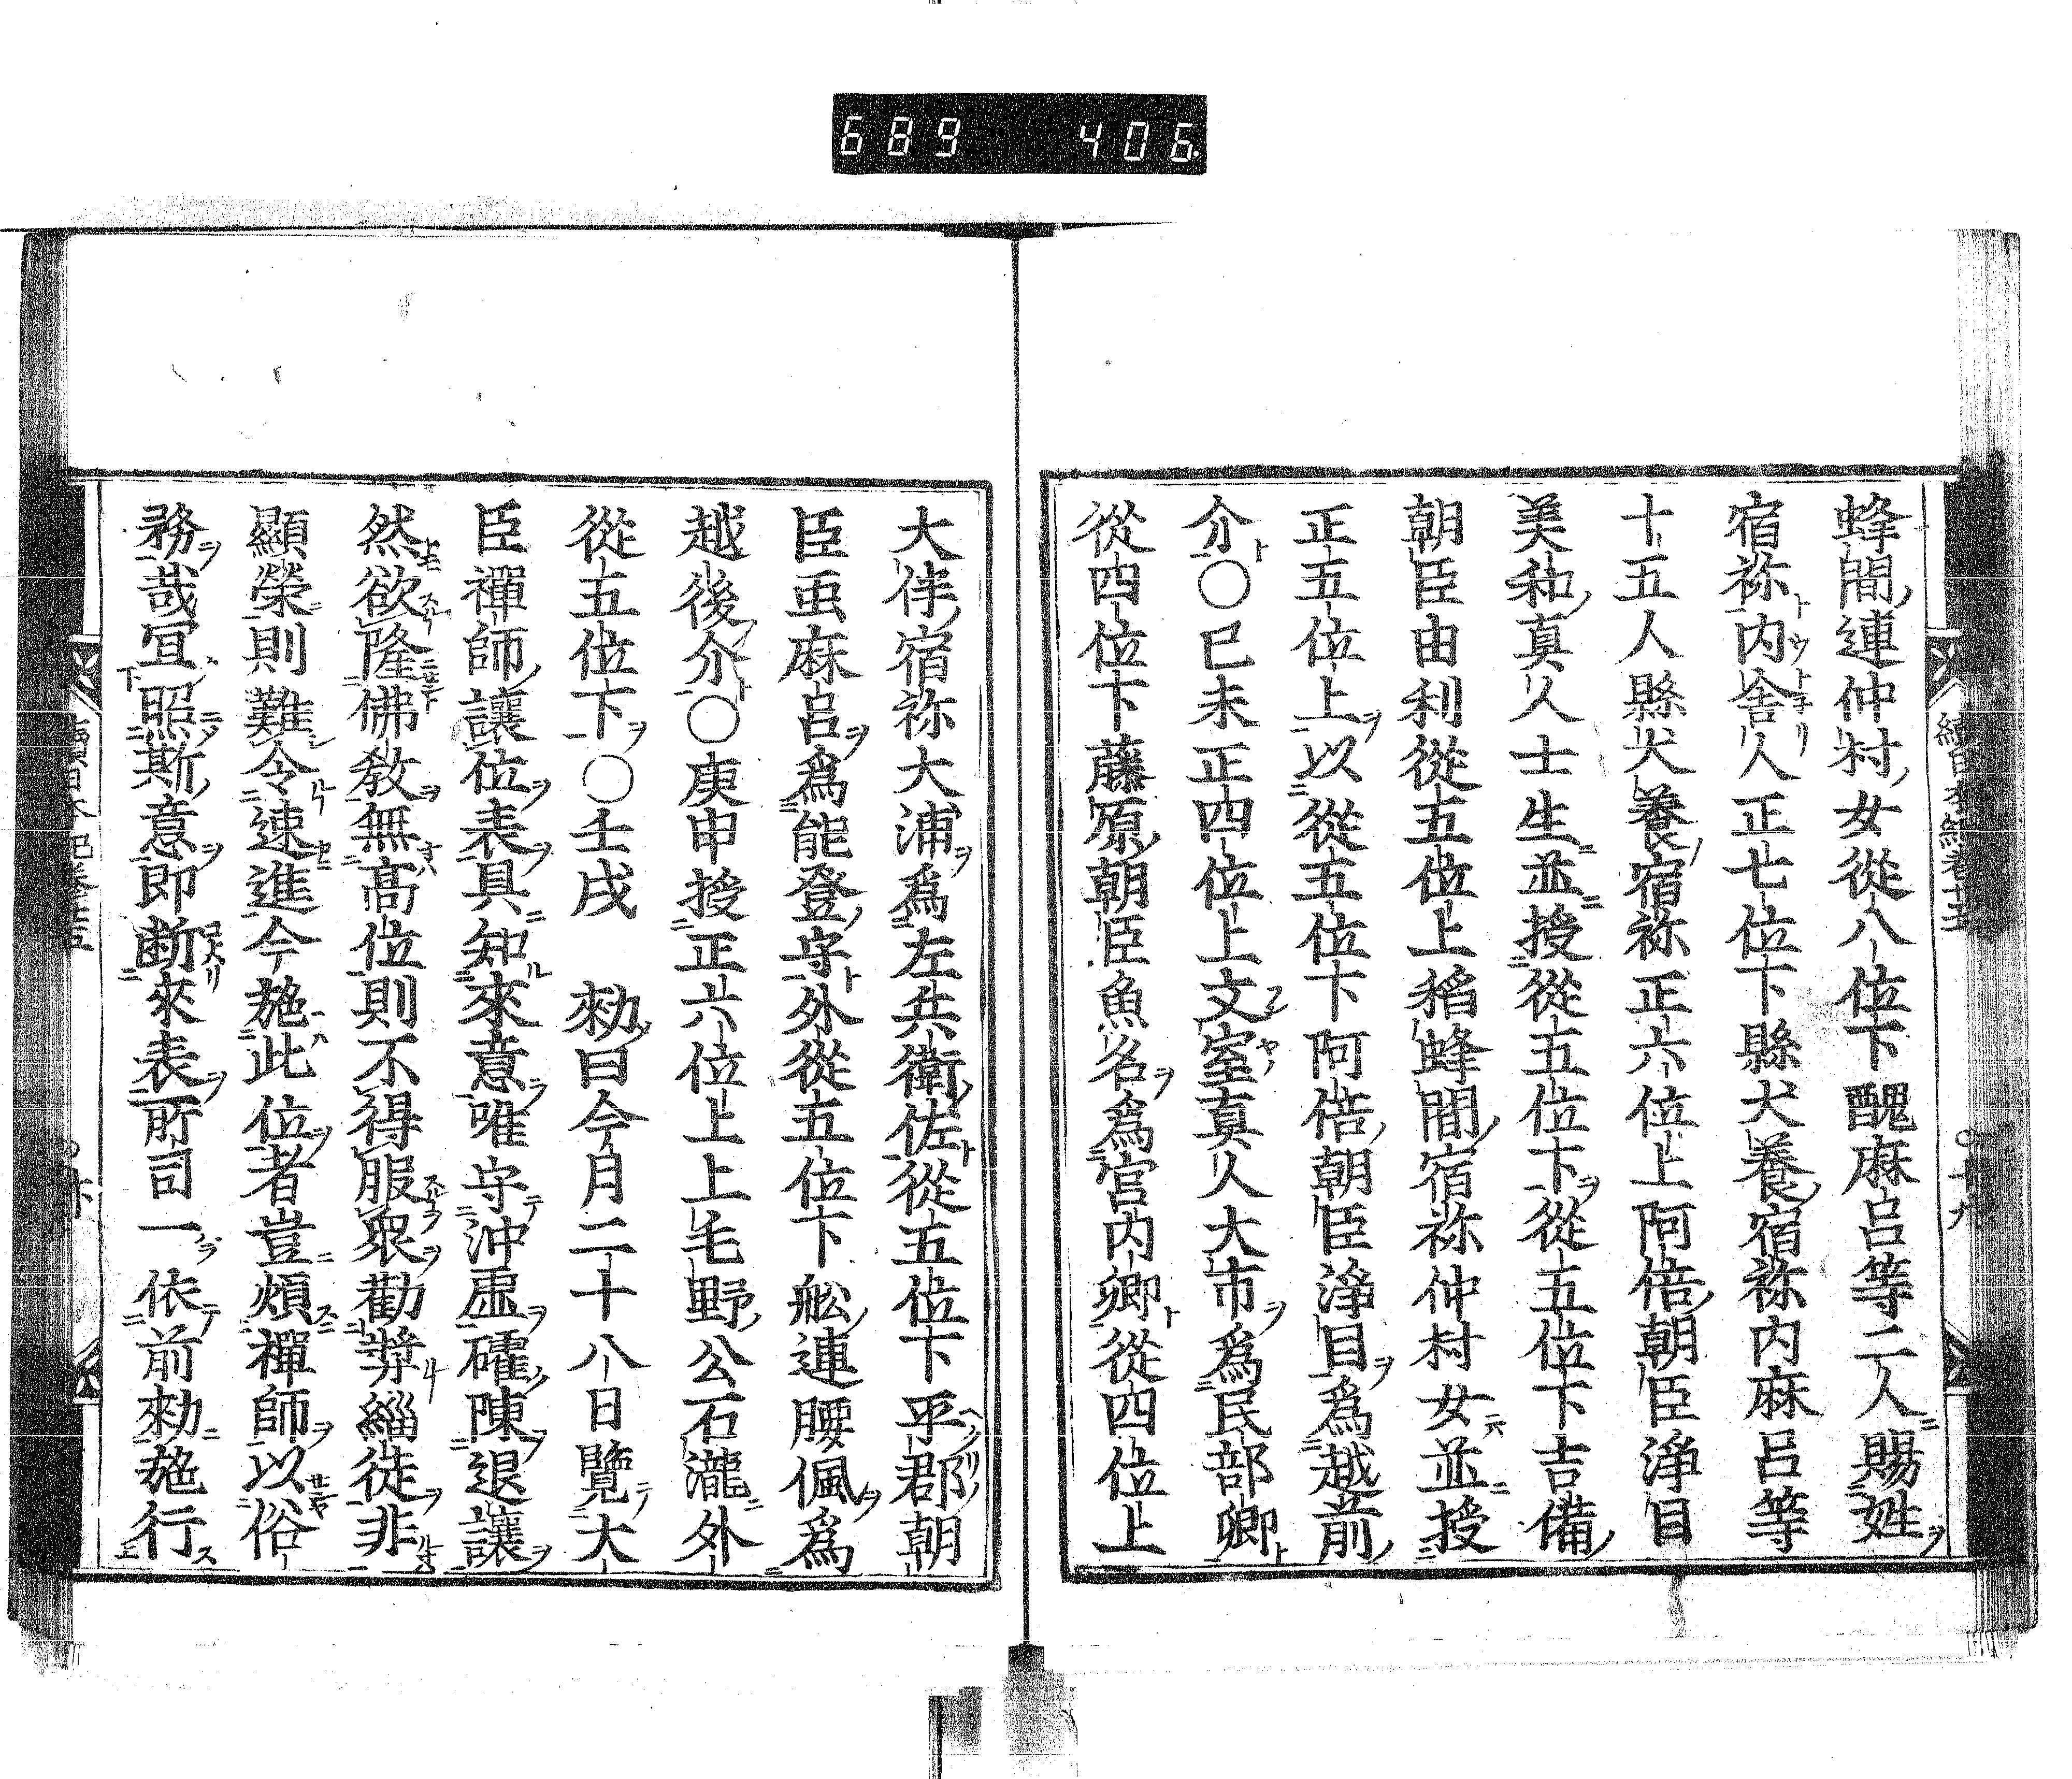 689 406
蜂間連仲村女從八位下醜麻呂等二人賜姓
宿祢内舍人正七位下縣犬養宿祢内麻呂等
十五人縣犬養宿祢正六位上阿倍朝臣淨目
美和真人士生並授從五位下從五位下吉備
朝臣由利從五位上稻蜂間宿祢仲村女並授
正五位上以從五位下阿倍朝臣淨目爲越前
介○己未正四位上文室真人大市爲民部卿
從四位下藤原朝臣魚名爲宮内卿從四位上
大伴宿祢大浦爲左兵衛佐從五位下平郡朝
臣虫麻呂爲能登守外從五位下舩連腰佩爲
越後介○庚申授正六位上上毛野公石瀧外
從五位下○壬戌 勑曰今月二十八日覽大
臣禪師讓位表具知來意唯守沖虛確陳退讓
然欲隆佛敎無髙位則不得服衆勸奬緇徒非
顯榮則難令速進今施此位者豈煩禪師以俗
務哉冝照斯意即断來表所司一依前勑施行